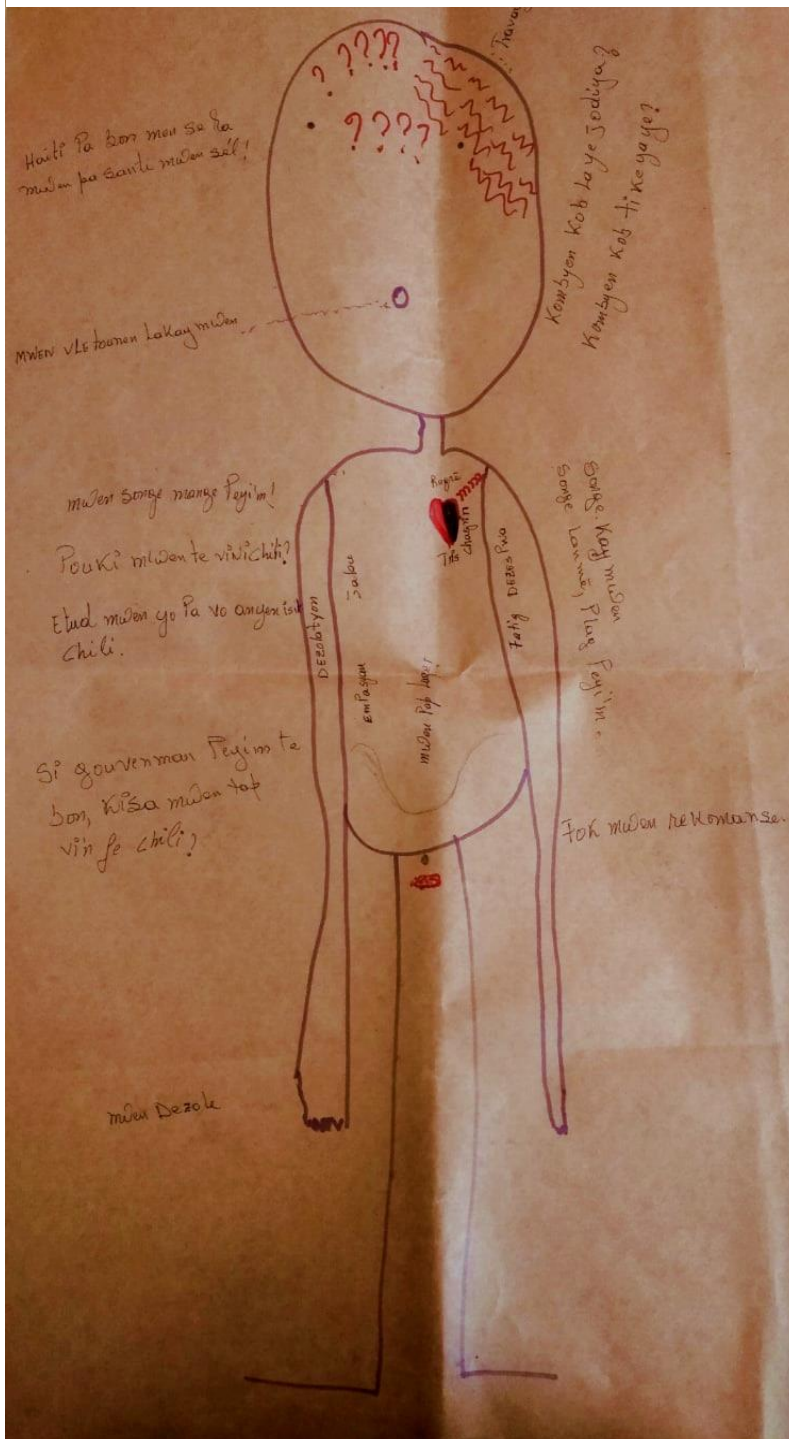 Travay
? ? ? ? ?
? ? ? ?
Haiti Pa bon men se la
mwen pa santi mwen sèl!
Kombyen Kob laye jodiya?
Kombyen Kob ti ke gaye?
MWEN VLE tounen Lakay mwen
mwen sonje manje Peyim!
Pouki mwen te vini chili?
Etud mwen yo Pa vo anyen isit
Chili.
Si gouvenman Peyim te
bon, Kisa mwen tap
vin fe chili?
mwen Dezole
DEZOLATYON
Jalou
EMPasyan
mwen Pap
Regrè
chagrin
Fatig DEZESPWA
Sonje Kay mwen
Sonje Lanmè, Plaj Peyi'm.
Fok mwen rekomanse.